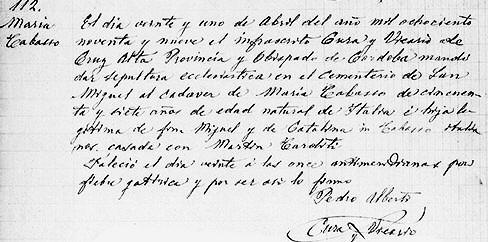 112.
Maria
Cabasso
El dia veinte y uno de Abril del año mil ochociento
noventa y nueve el infrascrito Cura y Vicario de
Cruz Alta Provincia y Obispado de Cordoba mando
dar sepultura eclesiastica en el Cementerio de San
Miguel al cadaver de Maria Cabasso de cincuen
ta y siete años de edad natural de Italia é hija le
gitima de Miguel y de Catalina Cabasso Italia
nos, casada con Martin
Faleció el dia veinte á las once antimeridianas por
fiebre gastrica y por ser asi lo firmo
Pedro Alberti
Cura y Vicario